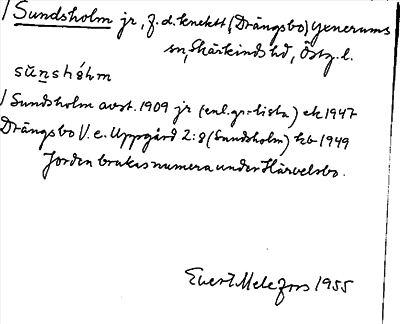 / Sundsholm jr, f.d. knekt, (Drängsbo) Yxnerums
sn, Skärkinds hd, Östg. l.
sŭn̥shólm
/ Sundsholm avst. 1909 jr (enl. gr-lista) ek 1947
Drängsbo V. e. Uppgård 2:8 (Sundsholm) hb 1949
Jorden brukas numera under Härvelsbo.
Evert Melefors 1955